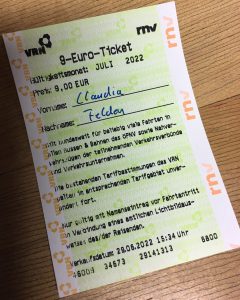 vrn
rnv
9-Euro-Ticket
Gültigkeitsmonat: JULI 2022
Preis: 9,00 EUR
Vorname: Claudia
Nachname: Feldon
Gilt bundesweit für beliebig viele Fahrten in
allen Bussen & Bahnen des SPNV sowie Nahver-
kehrszügen der teilnehmenden Verkehrsverbünde
und Verkehrsunternehmen.
Die bestehenden Tarifbestimmungen des VRN
gelten im entsprechenden Tarifgebiet unver-
ändert fort.
Nur gültig mit Namenseintrag vor Fahrtantritt
in Verbindung eines amtlichen Lichtbildaus-
weises des/der Reisenden.
Verkaufsdatum 29.06.2022 15:34 Uhr
34673 29141313 6800